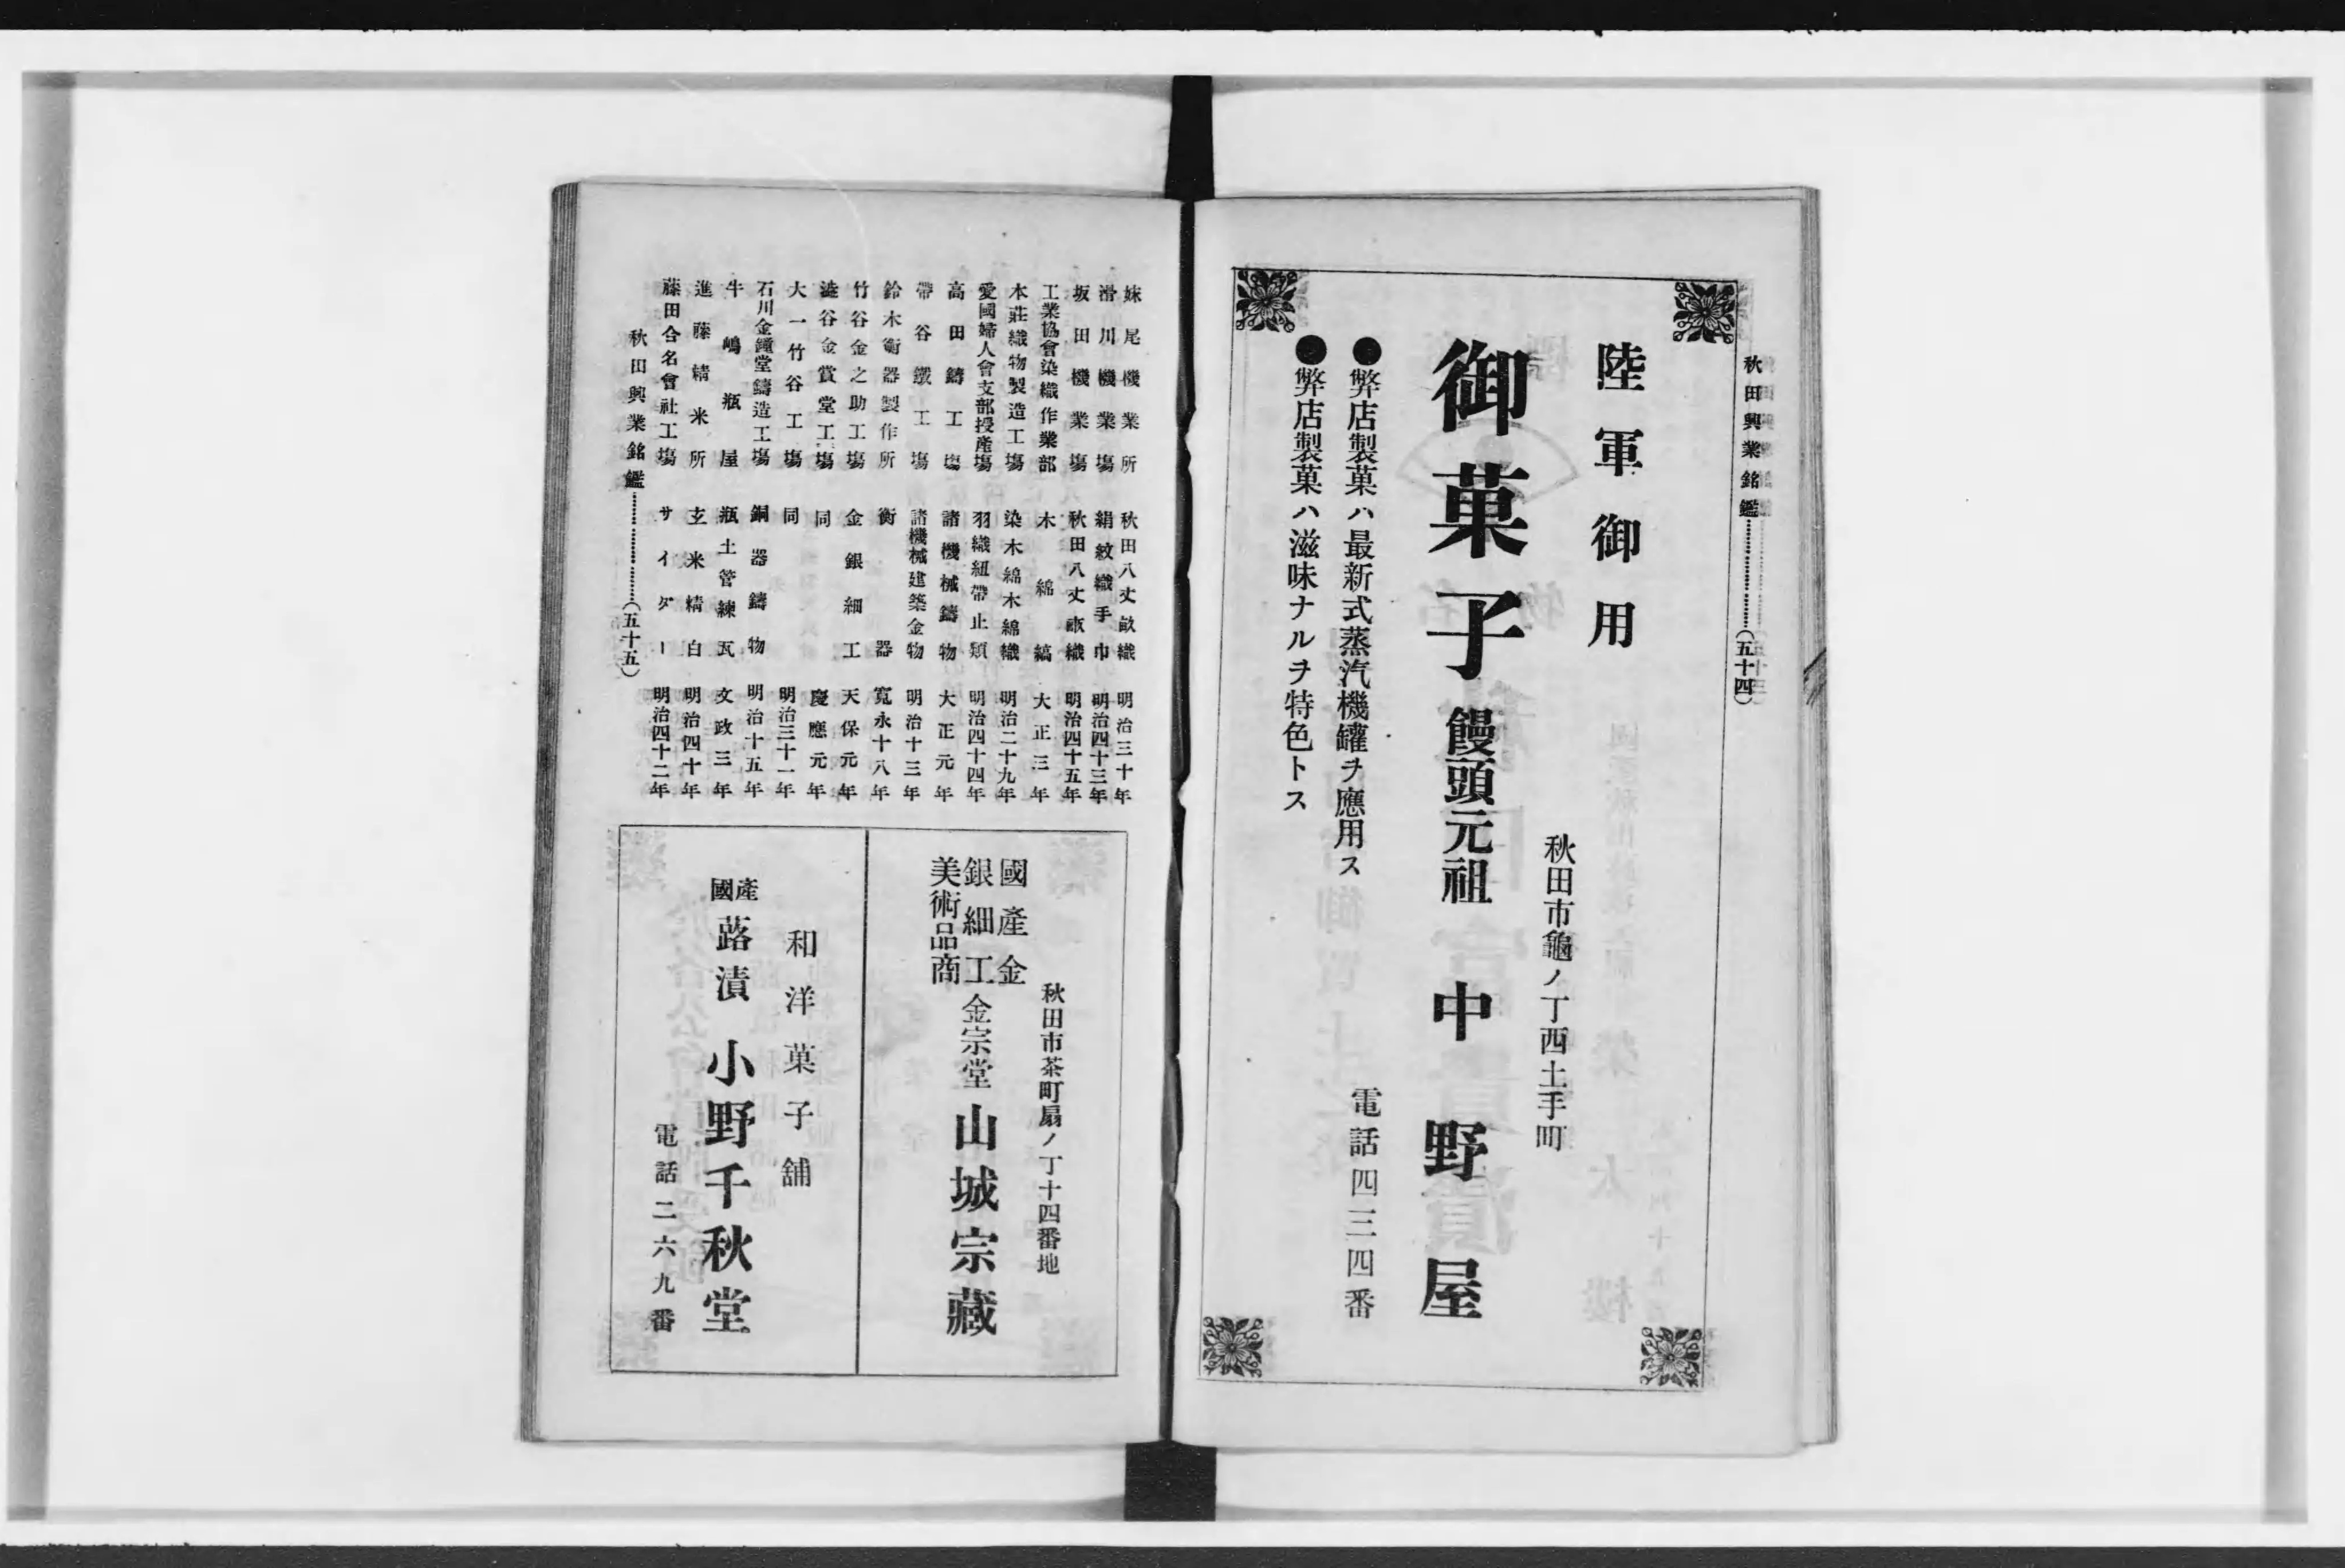 秋田興業銘鑑…………(五十四)
陸軍御用
秋田市龜ノ丁西土手町
御菓子饅頭元祖 中野屋
●弊店製菓ハ最新式蒸汽機罐ヲ應用ス
電話四三四番
●弊店製菓ハ滋味ナルヲ特色トス
妹尾機業所 秋田八丈畝織 明治三十年
滑川機業塲 絹紋織手巾 明治四十三年
坂田機業塲 秋田八丈畝織 明治四十五年
工業協會染織作業部 木綿縞 大正三年
本莊織物製造工塲 染木綿木綿織 明治二十九年
愛國婦人會支部授產塲 羽織紐帶止類 明治四十四年
高田鑄工塲 諸機械鑄物 大正元年
帶谷鐵工塲 諸機械建築金物 明治十三年
鈴木衡器製作所 衡器 寬永十八年
竹谷金之助工塲 金銀細工 天保元年
澁谷金賞堂工塲 同 慶應元年
大一竹谷工塲 同 明治三十一年
石川金鐘堂鑄造工塲 銅器鑄物 明治十五年
牛嶋瓶屋 瓶土管煉瓦 文政三年
進藤精米所 玄米精白 明治四十年
藤田合名會社工塲 サイダー 明治四十二年
秋田興業銘鑑…………(五十五)
秋田市茶町扇ノ丁十四番地
國產金
銀細工
美術品商
金宗堂 山城宗藏
和洋菓子舖
國產 蕗漬 小野千秋堂
電話二六九番